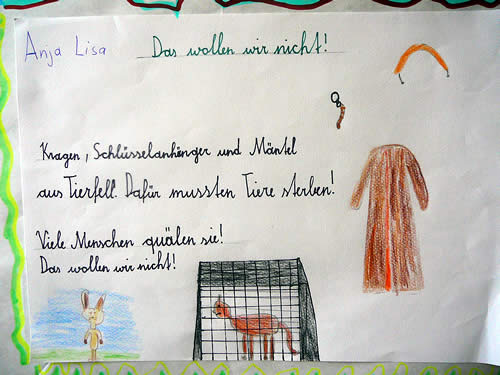 Anja Lisa
Das wollen wir nicht!
Kragen, Schlüsselanhänger und Mäntel
aus Tierfell. Dafür mussten Tiere sterben!
Viele Menschen quälen sie!
Das wollen wir nicht!